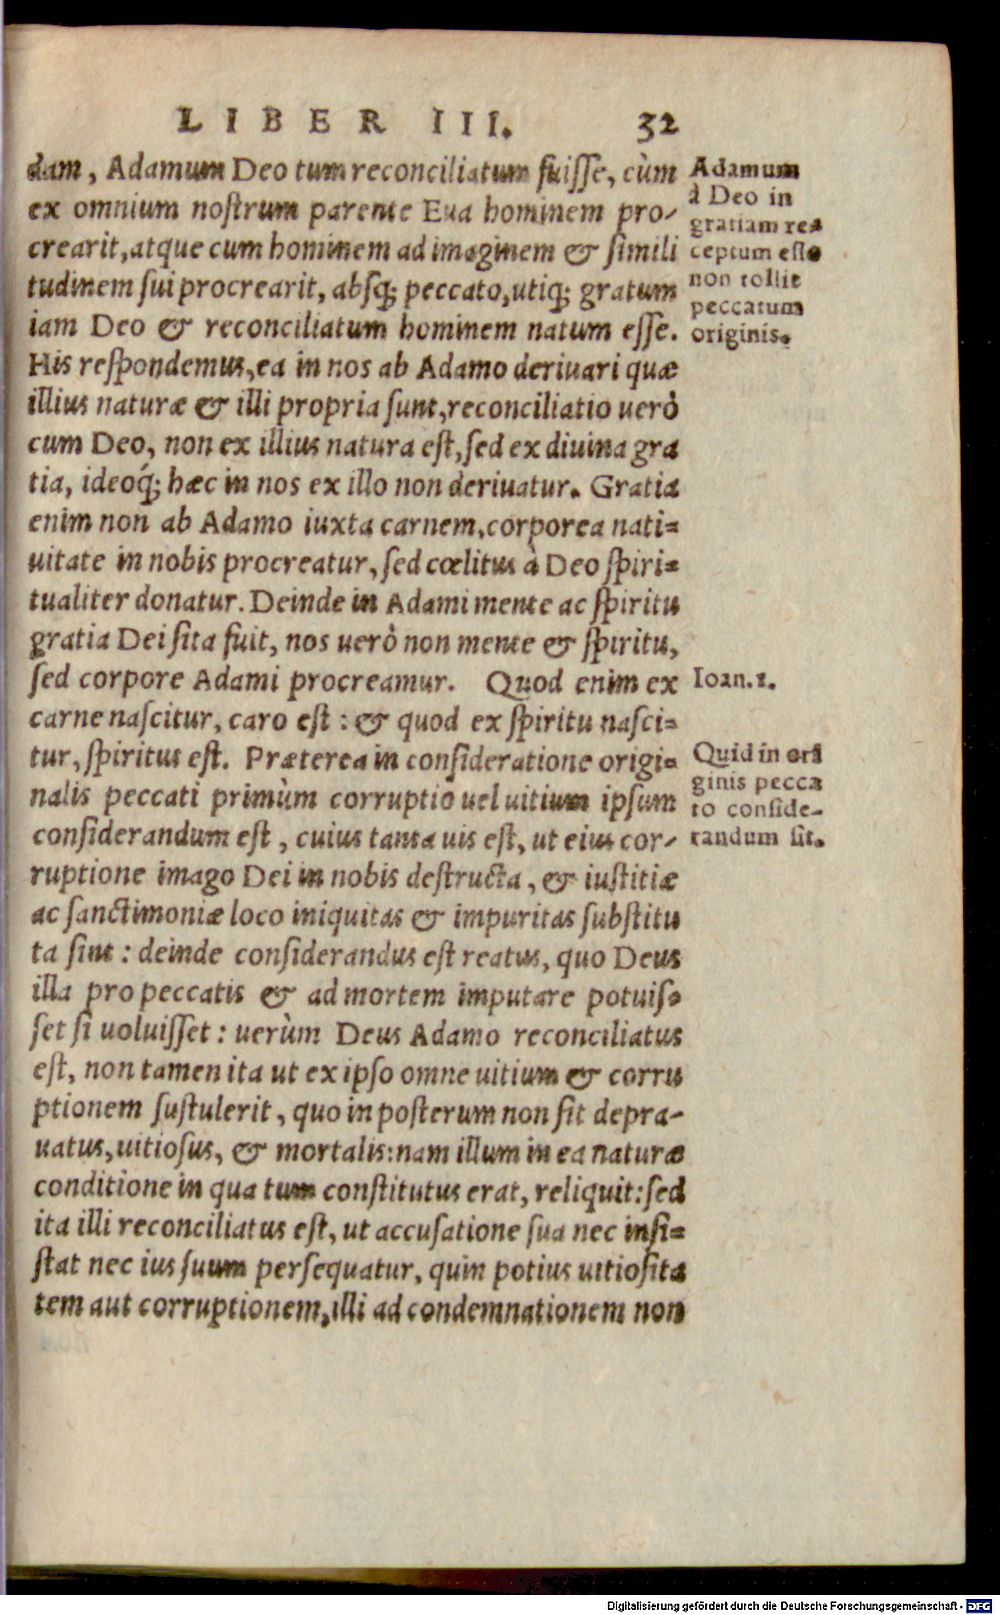 LIBER III. 32
dam, Adamum Deo tum reconciliatum fuisse, cùm
ex omnium nostrum parente Eua hominem pro-
crearit, atque cum hominem ad imaginem & simili
tudinem sui procrearit, absq; peccato, utiq; gratum
iam Deo & reconciliatum hominem natum esse.
His respondemus, ea in nos ab Adamo deriuari quæ
illius naturæ & illi propria sunt, reconciliatio uerò
cum Deo, non ex illius natura est, sed ex diuina gra
tia, ideoq́; hæc in nos ex illo non deriuatur. Gratia
enim non ab Adamo iuxta carnem, corporea nati-
uitate in nobis procreatur, sed cœlitus à Deo spiri-
tualiter donatur. Deinde in Adami mente ac spiritu
gratia Dei sita fuit, nos uerò non mente & spiritu,
sed corpore Adami procreamur. Quod enim ex
carne nascitur, caro est: & quod ex spiritu nasci-
tur, spiritus est. Præterea in consideratione origi-
nalis peccati primùm corruptio uel uitium ipsum
considerandum est, cuius tanta uis est, ut eius cor-
ruptione imago Dei in nobis destructa, & iustitiæ
ac sanctimoniæ loco iniquitas & impuritas substitu
ta sint: deinde considerandus est reatus, quo Deus
illa pro peccatis & ad mortem imputare potuis-
set si uoluisset: uerùm Deus Adamo reconciliatus
est, non tamen ita ut ex ipso omne uitium & corru
ptionem sustulerit, quo in posterum non sit depra-
uatus, uitiosus, & mortalis: nam illum in ea naturæ
conditione in qua tum constitutus erat, reliquit: sed
ita illi reconciliatus est, ut accusatione sua nec insi-
stat nec ius suum persequatur, quin potius uitiosita
tem aut corruptionem, illi ad condemnationem non
Adamum
à Deo in
gratiam re-
ceptum esse
non tollit
peccatum
originis.
Ioan.1.
Quid in ori
ginis pecca
to conside-
randum sit.
Digitalisierung gefördert durch die Deutsche Forschungsgemeinschaft - DFG